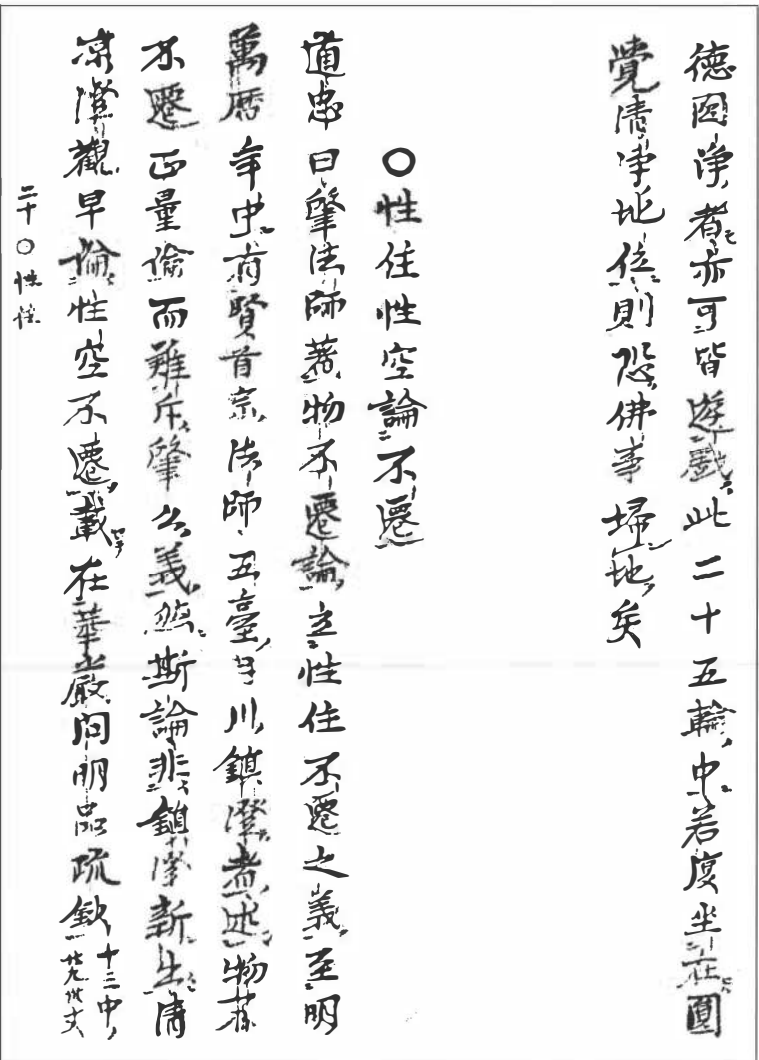 德圓淨者亦可皆遊戲此二十五輪中若度坐在圓
覺清淨地位則恐佛事掃地矣
〇性住性空論不遷
道忠曰肇法師著物不遷論立性住不遷之義至明
萬曆年中有賢首宗法師五臺月川鎮澄者述物不
不遷正量論而難斥肇公義然斯論非鎮澄新出清
凉澄觀早論性空不遷載在華嚴問明品疏鈔十三中
二十〇性住